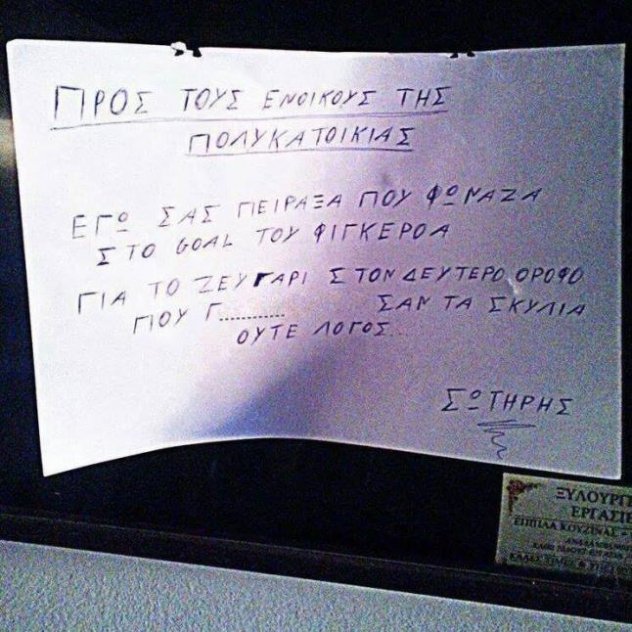 ΠΡΟΣ ΤΟΥΣ ΕΝΟΙΚΟΥΣ ΤΗΣ
ΠΟΛΥΚΑΤΟΙΚΙΑΣ
ΕΓΩ ΣΑΣ ΠΕΙΡΑΞΑ ΠΟΥ ΦΩΝΑΖΑ
ΣΤΟ GOAL ΤΟΥ ΦΙΓΚΕΡΟΑ
ΓΙΑ ΤΟ ΖΕΥΓΑΡΙ ΣΤΟΝ ΔΕΥΤΕΡΟ ΟΡΟΦΟ
ΠΟΥ Γ........... ΣΑΝ ΤΑ ΣΚΥΛΙΑ
ΟΥΤΕ ΛΟΓΟΣ...
ΣΩΤΗΡΗΣ
ΞΥΛΟΥΡΓ
ΕΡΓΑΣΙΕ
ΕΠΙΠΛΑ ΚΟΥΖΙΝΑΣ -